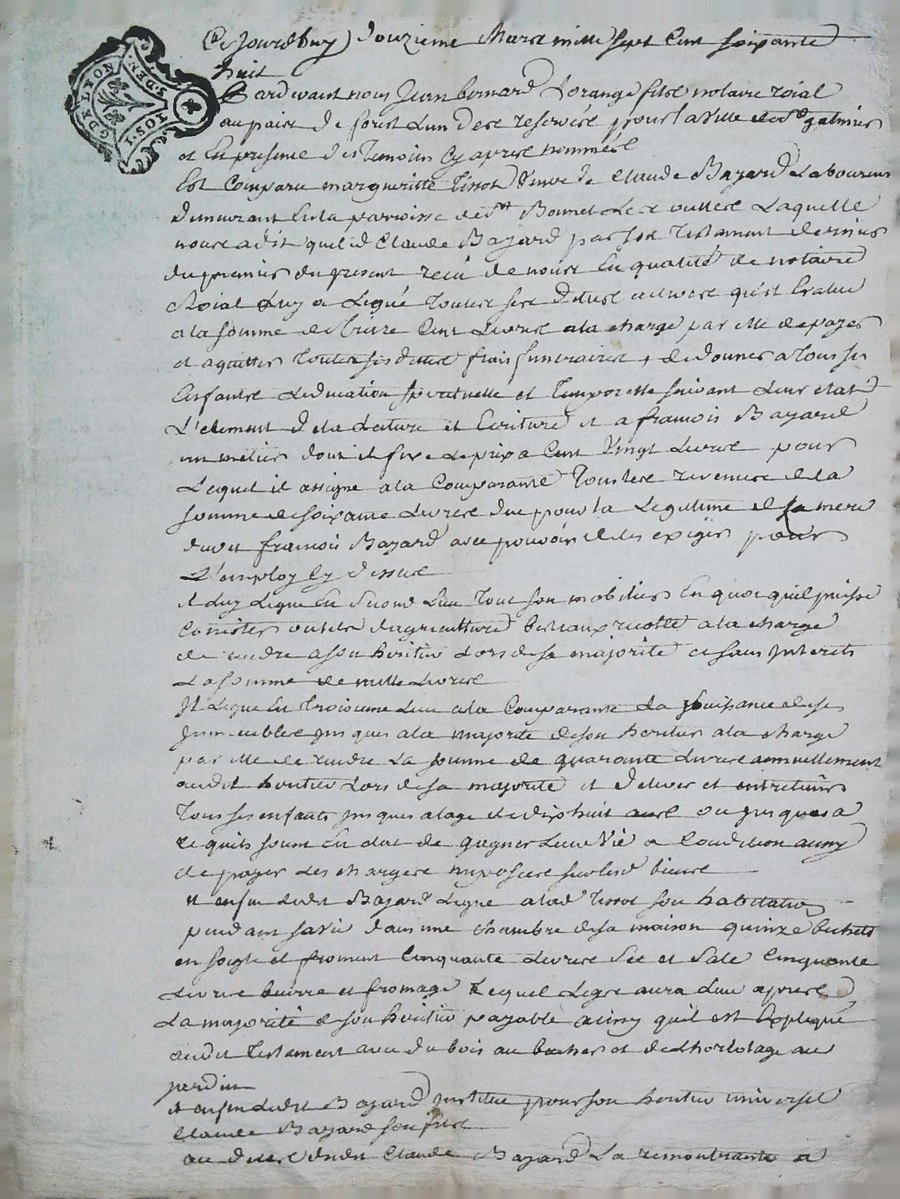 GDE LYON
S. DEN.
1 OS.
Ce jourdhuy douzieme Mars mille sept cent soixante
huit
Pardevant nous Jean bernard Lorange fils notaire roial
au pais de forest Lun des reservés pour la ville de st galmier
et En presence des temoins Cy apres nommés
Est Comparu margueritte tissot veuve de Claude Bazard Laboureur
demeurant En la parroisse de st Bonnet Les oulles Laquelle
nous a dit que led Claude Bazard par son testament dernier
du premier du present reçû de nous En qualité de notaire
Roial Luy a Legué toutes ses dettes actives qu'il Evalue
a la somme de treize Cent Livres a la charge par elle de payer
et aquitter toutes ses dettes frais funeraires, de donner a tous ses
Enfants L'education spirituelle et temporelle suivant leur etat
L'element de la Lature et Ecriture et a francois Bazard
un metier dont il fixe le prix a Cent Vingt Livres pour
Lequel il assigne a la Comparante tous les revenus de la
somme de soixante Livres due pour la Legitime de sa mere
dudit francois Bazard avec pouvoir de les exiger pour
L'employ Cy dessus
il luy Legue En second Lieu tout son mobilier En quoi qu'il puisse
Consister outils d'agriculture bestiaux recolte a la charge
de rendre a son heritier Lors de sa majorité et sans Interets
La somme de mille Livres
Il Legue En troisieme Lieu a la Comparante La Jouissance de ses
Immeubles jusques a la majorité de son heritier a la charge
par elle de rendre La somme de quarante Livres annuellement
audit heritier Lors de sa majorité et d'elever et entretenir
tous ses enfants jusques a lage de dix huit ans ou jusques a
ce quils soient En etat de gagner leur Vie a Condition aussy
de payer Les charges imposées sur lesd biens
et enfin ledit Bazard Legue a lad tissot son habitation
pendant sa vie dans une chambre de sa maison quinze bichets
en soigle et froment Cinquante Livres Sée et Salé Cinquante
Livres beurre et fromage Lequel Legs aura Lieu apres
La majorité de son heritier payable ainsy quil est Expliqué
audit testament avec du bois au bucher et de l'hortolage au
jardin
et enfin ledit Bazard institue pour son heritier universel
Claude Bazard son fils
au deces dudit Claude Bazard La remontrante a